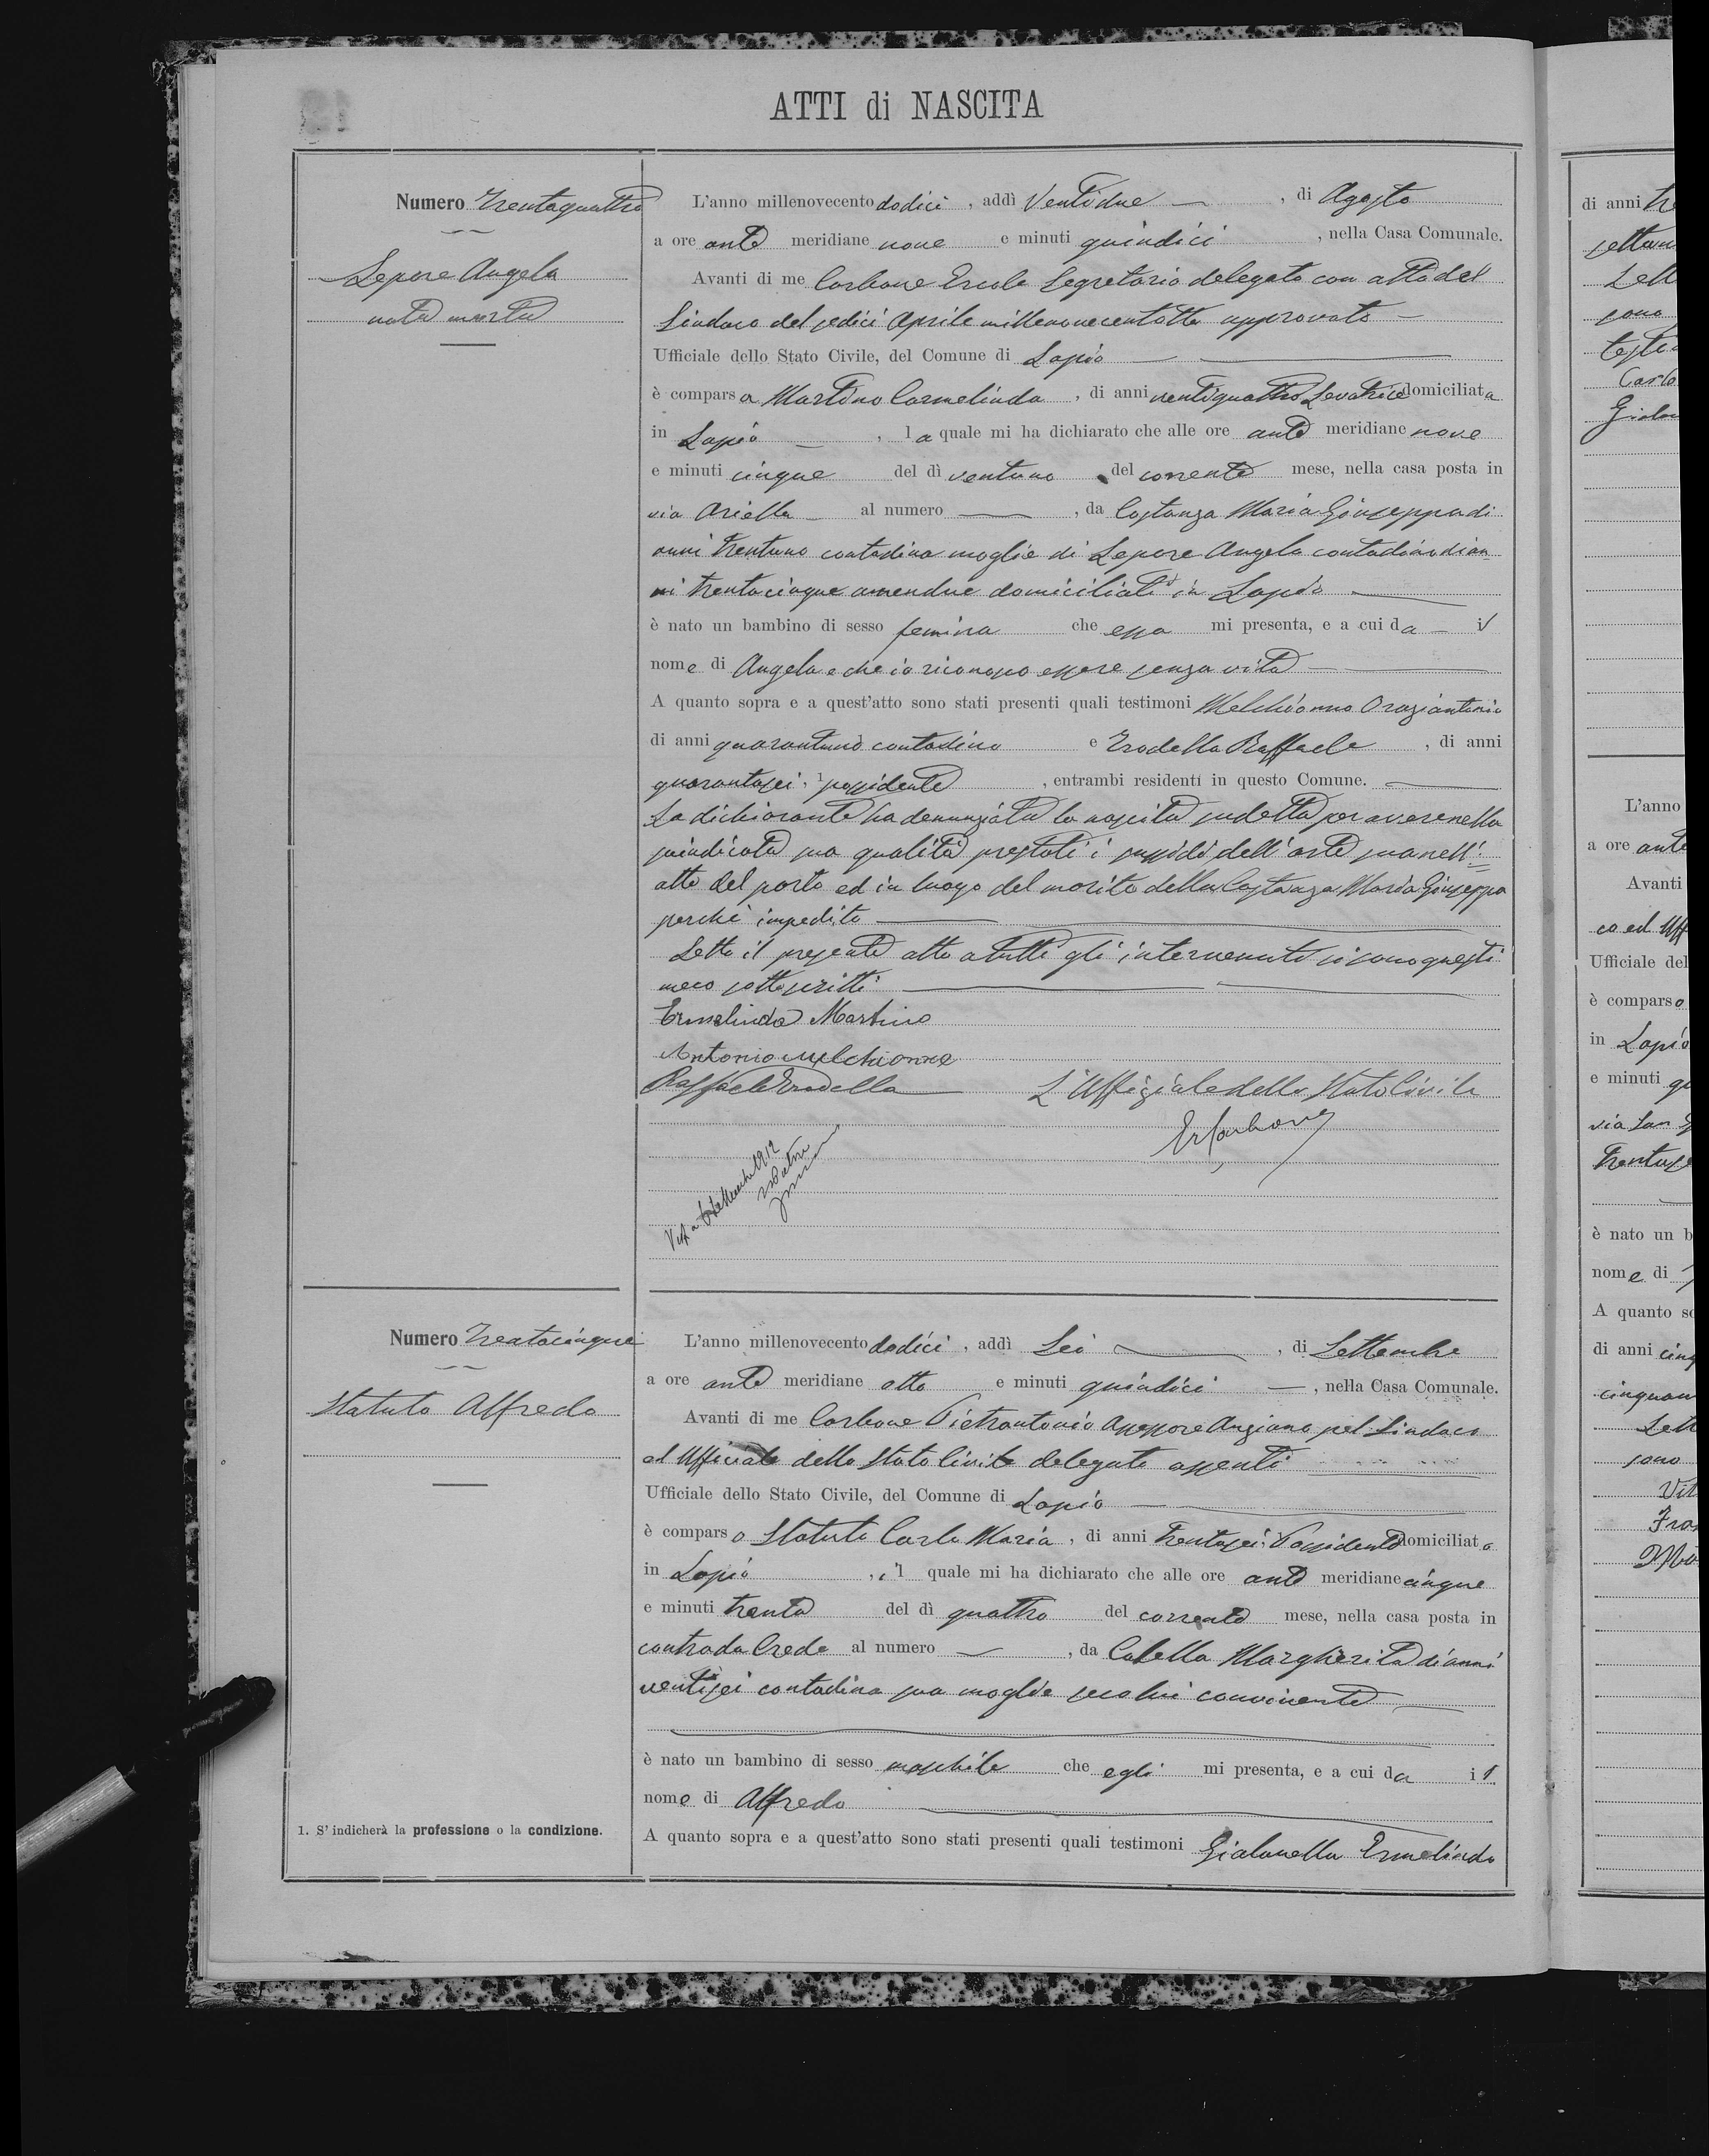 ATTI di NASCITA
Numero Trentaquattro
Lepore Angela
nata morta
L'anno millenovecento dodici, addì Ventidue, di Agosto
a ore ante meridiane nove e minuti quindici, nella Casa Comunale.
Avanti di me Carbone Ercole Segretario delegato con atto del
Sindaco del sedici Aprile millenovecentotto approvato
Ufficiale dello Stato Civile, del Comune di Lapio
è comparsa Martino Carmelinda, di anni ventiquattro Levatrice domiciliata
in Lapio, la quale mi ha dichiarato che alle ore ante meridiane nove
e minuti cinque del dì ventuno del corrente mese, nella casa posta in
via Ariella al numero, da Costanza Maria Giuseppa di
anni trentuno contadina moglie di Lepore Angelo contadino di an-
ni trentacinque amendue domiciliati in Lapio
è nato un bambino di sesso femina che essa mi presenta, e a cui da il
nome di Angela e che io riconosco essere senza vita
A quanto sopra e a quest'atto sono stati presenti quali testimoni Melchionno Oraziantonio
di anni quarantuno contadino e Trodella Raffaele, di anni
quarantasei, possidente, entrambi residenti in questo Comune.
La dichiarante ha denunziata la nascita sudetta per avere nella
suindicata sua qualità prestati i sussidi dell'arte sua nell'
atto del parto ed in luogo del marito della Costanza Maria Giuseppa
perché impedito
Letto il presente atto a tutti gli intervenuti si sono questi
meco sottoscritti
Ermelinda Martino
Antonio Melchionne
Raffaele Trodella L'Uffiziale dello Stato Civile
ErCarbone
1912
Numero Trentacinque
Statuto Alfredo
L'anno millenovecento dodici, addì Sei, di Settembre
a ore ante meridiane otto e minuti quindici, nella Casa Comunale.
Avanti di me Carbone Pietrantonio Assessore Anziano pel Sindaco
ed Ufficiale dello Stato Civile delegato assenti
Ufficiale dello Stato Civile, del Comune di Lapio
è comparso Statuto Carlo Maria, di anni trentasei, Possidente domiciliato
in Lapio, il quale mi ha dichiarato che alle ore ante meridiane cinque
e minuti trenta del dì quattro del corrente mese, nella casa posta in
contrada Crede al numero, da Calella Margherita di anni
ventisei contadina sua moglie seco lui convivente
è nato un bambino di sesso maschile che egli mi presenta, e a cui da il
nome di Alfredo
A quanto sopra e a quest'atto sono stati presenti quali testimoni Gialanella Ermelindo
1. S'indicherà la professione o la condizione.
di anni
L'anno
a ore ante
Avanti
co ed Uff
Ufficiale del
è comparso
in Lapio
e minuti
via San
è nato un b
nome di
A quanto so
di anni cinq
cinquan
Lett
sono
Vit